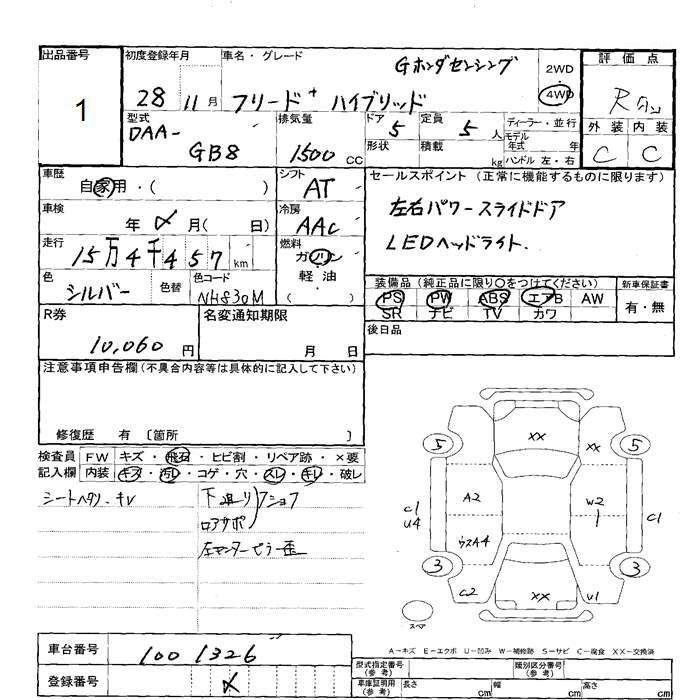 出品番号
1
初度登録年月
28 11月
車名・グレード
Gホンダセンシング
フリード+ ハイブリッド
2WD
・
4WD
評価点
R
外装 内装
C C
型式
DAA-
GB8
排気量
1500 cc
ドア 5
形状
定員 5 人
積載 kg
ディーラー・並行
モデル
年式 年
ハンドル 左・右
車歴
自家用・( )
シフト
AT
車検
年 〆月( 日)
冷房
AAC
走行
15万4千457km
燃料
ガソリン
軽油
( )
色
シルバー 色替
色コード
NH830M
セールスポイント (正常に機能するものに限ります)
左右パワースライドドア
LEDヘッドライト.
装備品 (純正品に限り○をつけてください)
PS PW ABS エアB AW
SR ナビ TV カワ
新車保証書
有・無
後日品
R券
10,060 円
名変通知期限
月 日
注意事項申告欄 (不具合内容等は具体的に記入して下さい)
修復歴 有 〔箇所 〕
検査員
記入欄
FW キズ・飛石・ヒビ割・リペア跡・×要
内装 キズ・汚れ・コゲ・穴・スレ・キレ・破レ
シートヘタリ・キレ
下廻り
ロアサポ
左センターピラー歪
XX
XX
5 5
A2
W2
C1
U4
C1
ウスA4
3 3
C2
XX
U1
スペア
A－キズ E－エクボ U－凹み W－補修跡 S－サビ C－腐食 XX－交換済
車台番号
1001326
登録番号
〆
型式指定番号
(参考)
類別区分番号
(参考)
車庫証明用
(参考)
長さ cm 幅 cm 高さ cm